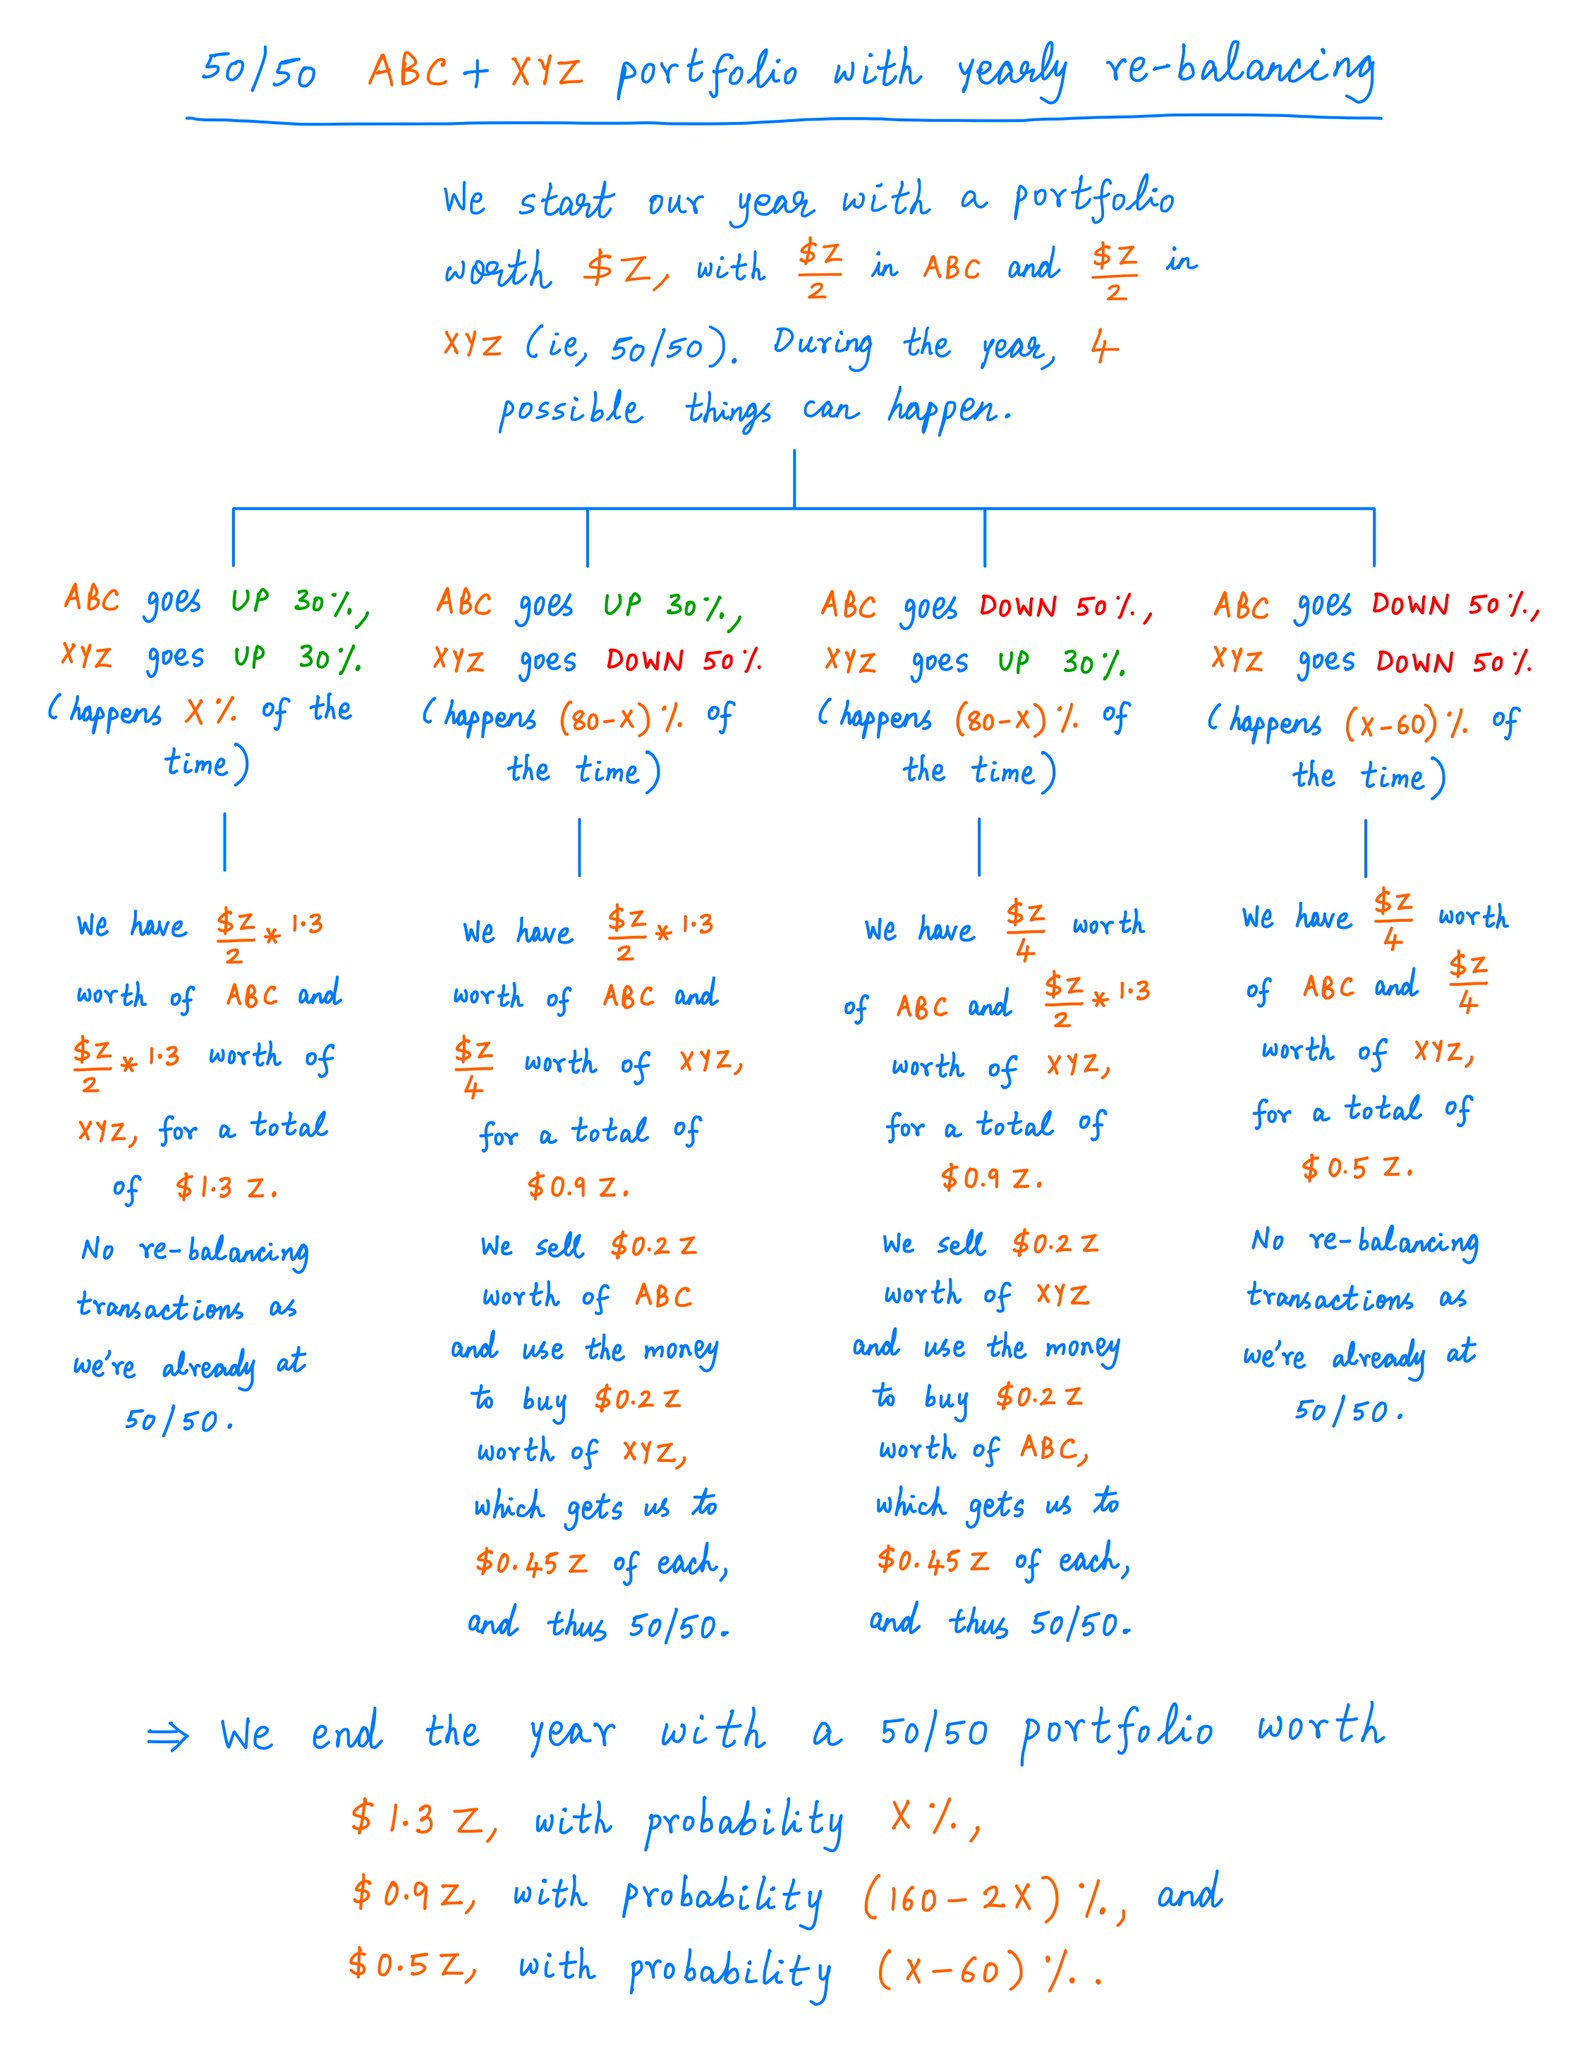 50/50 ABC + XYZ portfolio with yearly re-balancing
We start our year with a portfolio
worth $Z, with $Z/2 in ABC and $Z/2 in
XYZ (ie, 50/50). During the year, 4
possible things can happen.
ABC goes UP 30%,
XYZ goes UP 30%.
(happens X% of the
time)
We have $Z/2 * 1.3
worth of ABC and
$Z/2 * 1.3 worth of
XYZ, for a total
of $1.3 Z.
No re-balancing
transactions as
we're already at
50/50.
ABC goes UP 30%,
XYZ goes DOWN 50%.
(happens (80-X)% of
the time)
We have $Z/2 * 1.3
worth of ABC and
$Z/4 worth of XYZ,
for a total of
$0.9 Z.
We sell $0.2 Z
worth of ABC
and use the money
to buy $0.2 Z
worth of XYZ,
which gets us to
$0.45 Z of each,
and thus 50/50.
ABC goes DOWN 50%,
XYZ goes UP 30%.
(happens (80-X)% of
the time)
We have $Z/4 worth
of ABC and $Z/2 * 1.3
worth of XYZ,
for a total of
$0.9 Z.
We sell $0.2 Z
worth of XYZ
and use the money
to buy $0.2 Z
worth of ABC,
which gets us to
$0.45 Z of each,
and thus 50/50.
ABC goes DOWN 50%,
XYZ goes DOWN 50%.
(happens (X-60)% of
the time)
We have $Z/4 worth
of ABC and $Z/4
worth of XYZ,
for a total of
$0.5 Z.
No re-balancing
transactions as
we're already at
50/50.
⇒ We end the year with a 50/50 portfolio worth
$1.3 Z, with probability X%,
$0.9 Z, with probability (160-2X)%, and
$0.5 Z, with probability (X-60)%.